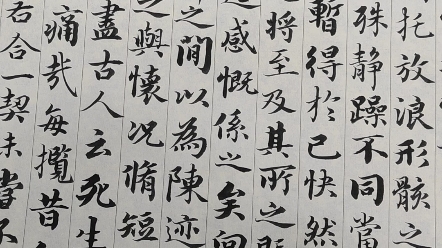 托放浪形骸之
殊静躁不同當
暫得於己快然
將至及其所之
感慨係之矣向
之間以為陳迹
之興懷况脩短
盡古人云死生
痛哉每攬昔
若合一契未嘗不